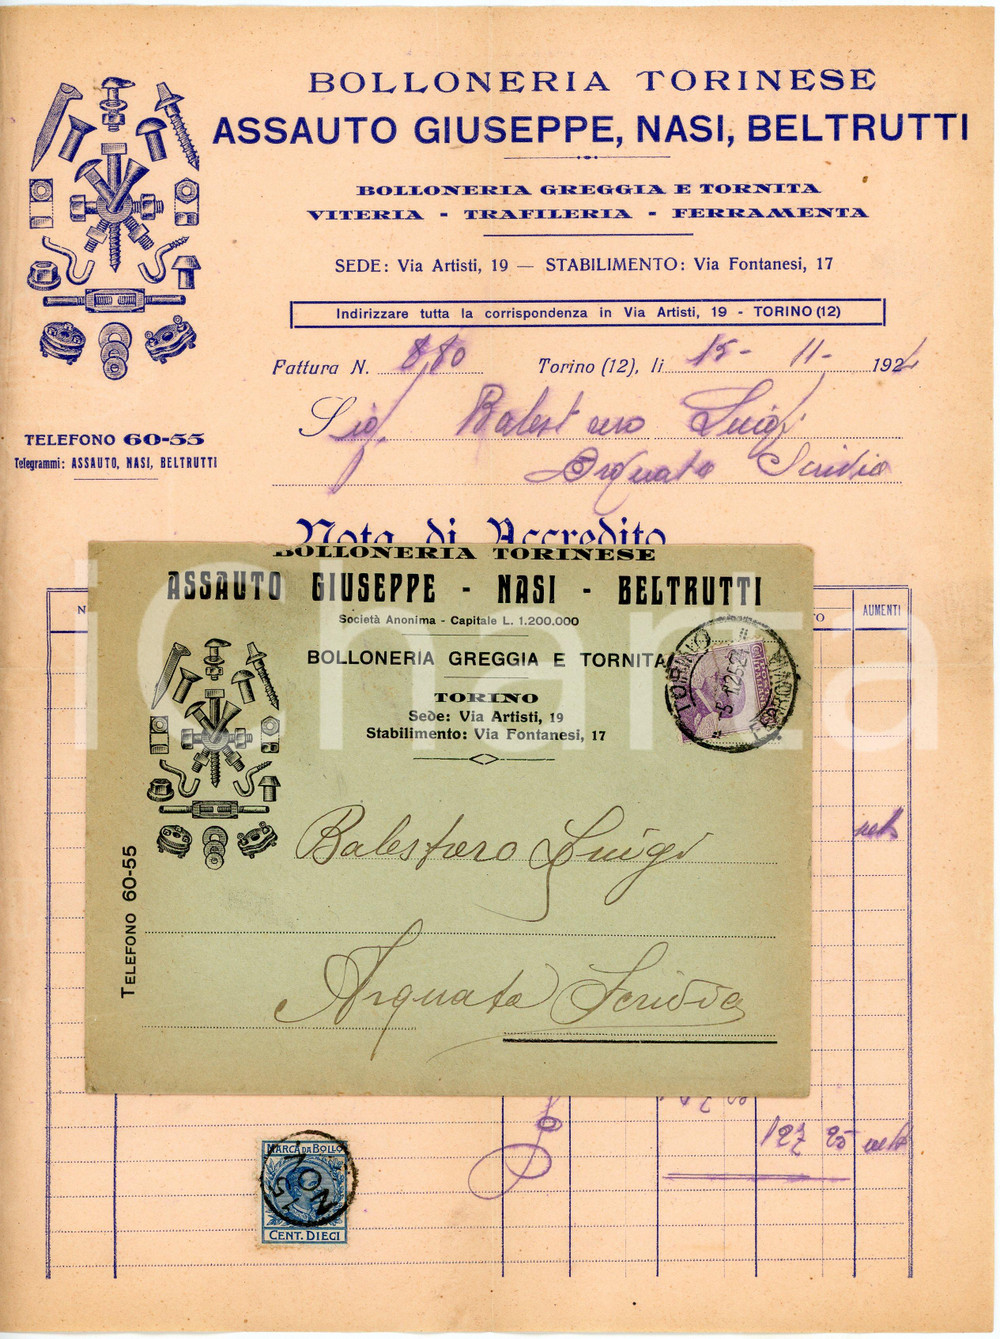 BOLLONERIA TORINESE
ASSAUTO GIUSEPPE, NASI, BELTRUTTI
BOLLONERIA GREGGIA E TORNITA
VITERIA - TRAFILERIA - FERRAMENTA
SEDE: Via Artisti, 19 — STABILIMENTO: Via Fontanesi, 17
Indirizzare tutta la corrispondenza in Via Artisti, 19 - TORINO (12)
Fattura N. 880 Torino (12), li 15- 11- 1924
TELEFONO 60-55
Telegrammi: ASSAUTO, NASI, BELTRUTTI
Sig. Balestrero Luigi
Arquata Scrivia
Nota di Accredito
N
TO
AUMENTI
BOLLONERIA TORINESE
ASSAUTO GIUSEPPE - NASI - BELTRUTTI
Società Anonima - Capitale L. 1.200.000
BOLLONERIA GREGGIA E TORNITA
TORINO
Sede: Via Artisti, 19
Stabilimento: Via Fontanesi, 17
TORINO
FERROVIA
TELEFONO 60-55
Balestrero Luigi
Arquata Scrivia
iCharta
127 25
MARCA DA BOLLO
NON
CENT. DIECI